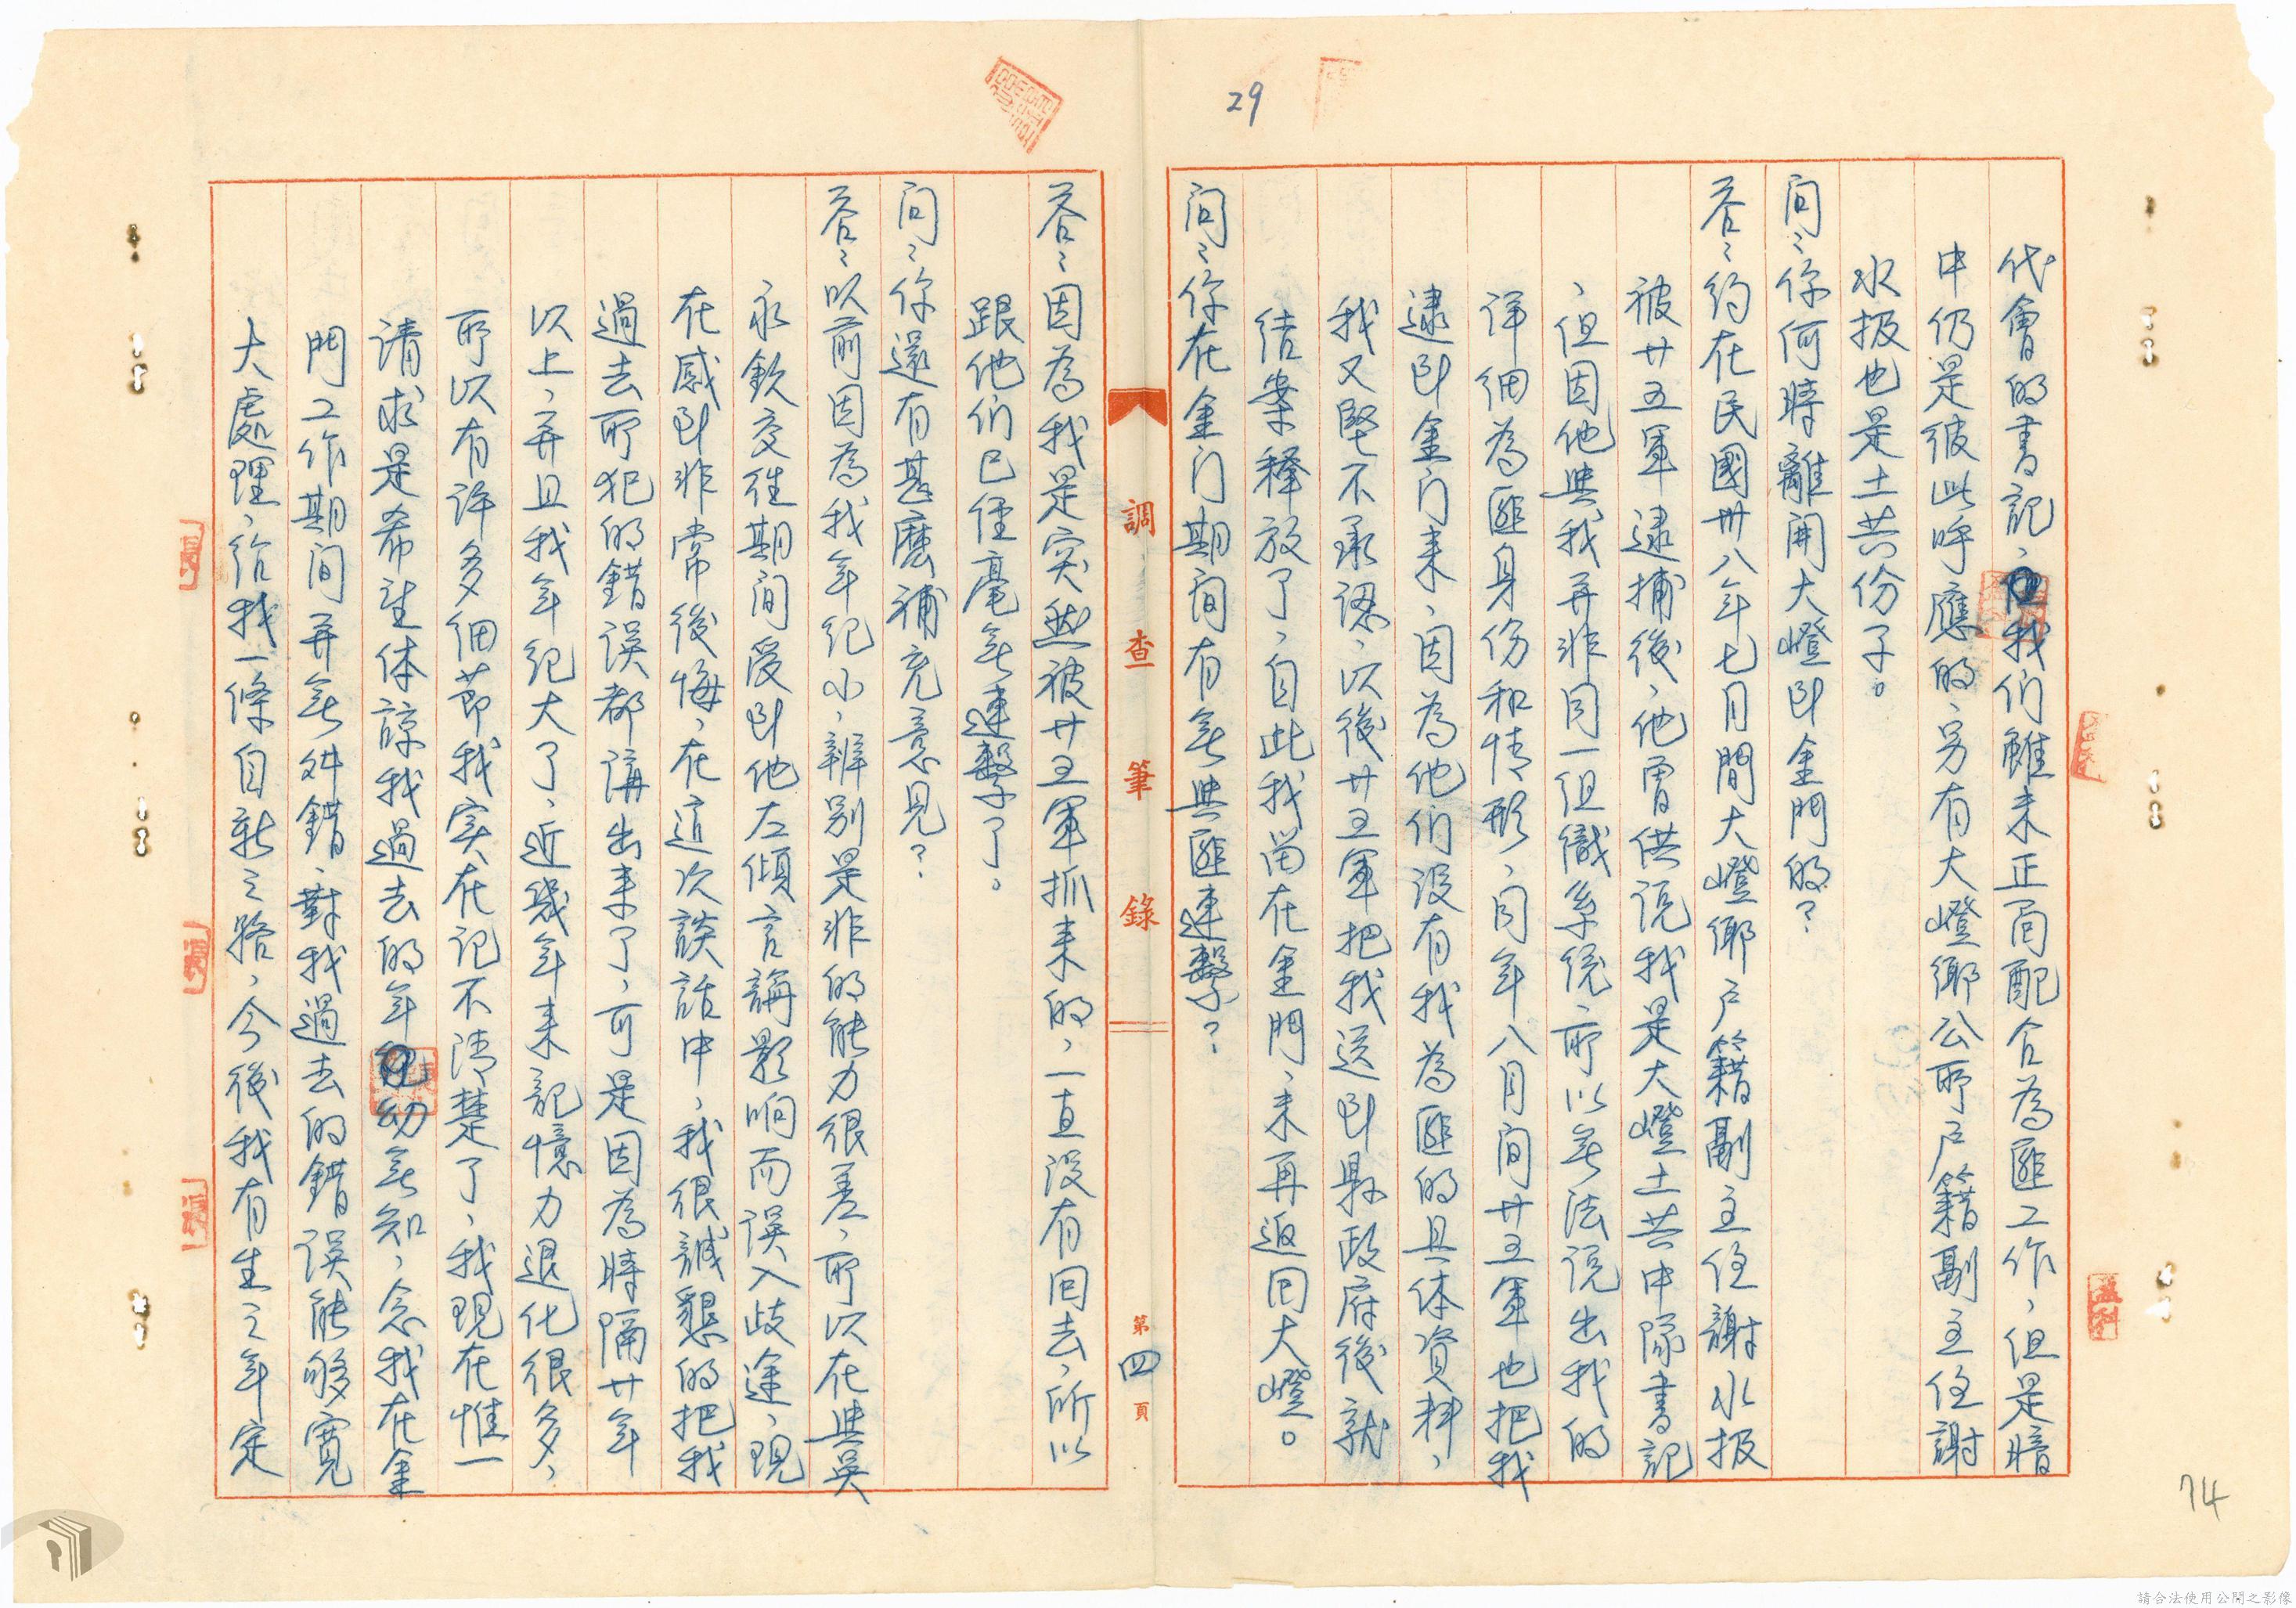 29
代會的書記，但我们雖未正面配合為匪工作，但是暗
中仍是彼此呼應的，另有大嶝鄉公所户籍副主任謝
水扱也是土共份子。
问：你何時離開大嶝到金門的？
答：约在民國卅八年七月間大嶝鄉户籍副主任謝水扱
被廿五軍逮捕後，他曾供说我是大嶝土共中隊書記
，但因他與我并非同一组織系统，所以無法说出我的
详细為匪身份和情形，同年八月间廿五軍也把我
逮到金门来，因為他们没有我為匪的具体資料，
我又堅不承認，以後廿五軍把我送到縣政府後就
结案釋放了，自此我留在金門，未再返回大嶝。
问：你在金门期间有無與匪連繫？
調查筆錄
第四頁
答：因為我是突然被廿五軍抓来的，一直没有回去，所以
跟他们已经毫無連繫了。
问：你還有甚麽補充意見？
答：以前因為我年纪小，辨别是非的能力很差，所以在與吳
永欽交往期间受到他左傾言論影响而误入歧途，現
在感到非常後悔，在這次談話中，我很誠懇的把我
過去所犯的錯误都講出来了，可是因為時隔廿年
以上，并且我年纪大了，近幾年来記憶力退化很多，
所以有许多细節我实在记不清楚了，我現在惟一
请求是希望体諒我過去的年幼無知，念我在金
門工作期间并無舛錯，對我過去的錯误能够寬
大處理，给我一條自新之路，今後我有生之年定
74
請合法使用公開之影像